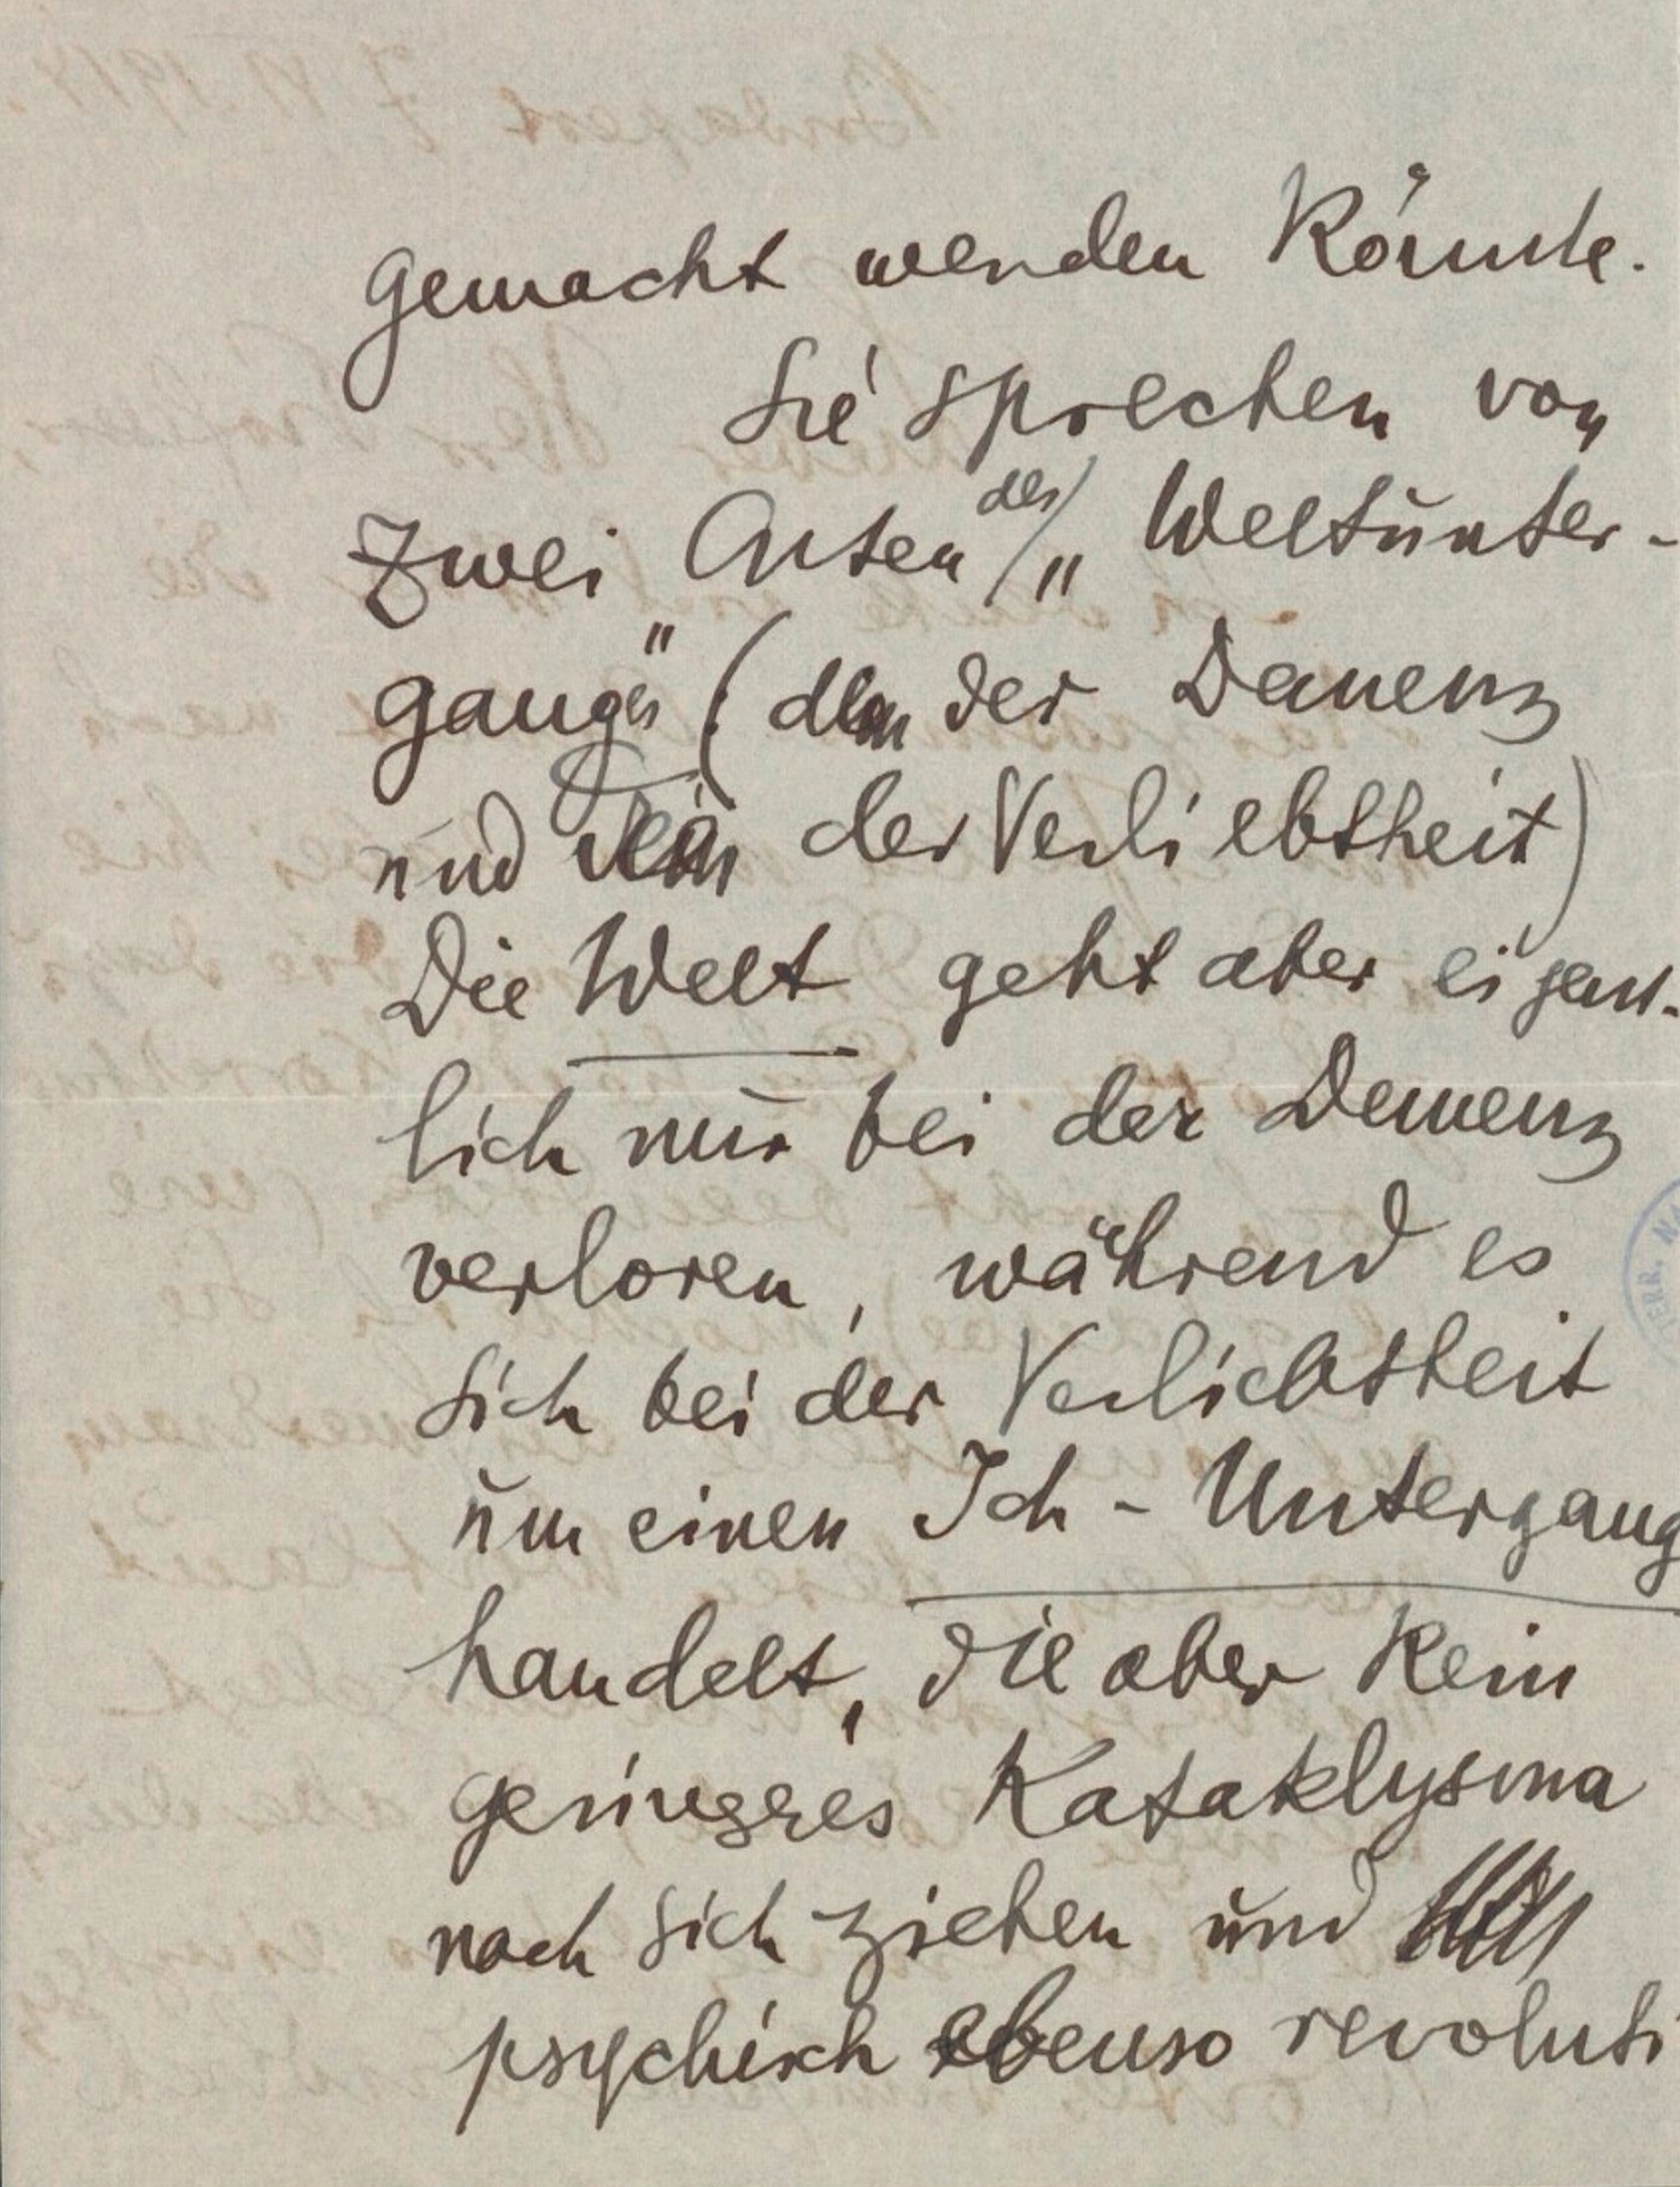 gemacht werden könnte.
Sie sprechen von
zwei Arten des „Weltunter-
ganges" (der Demenz
und der Verliebtheit)
Die Welt geht aber eigent-
lich nur bei der Demenz
verloren, während es
sich bei der Verliebtheit
um einen Ich-Untergang
handelt, die aber kein
geringeres Kataklysma
nach sich ziehen und
psychisch ebenso revoluti